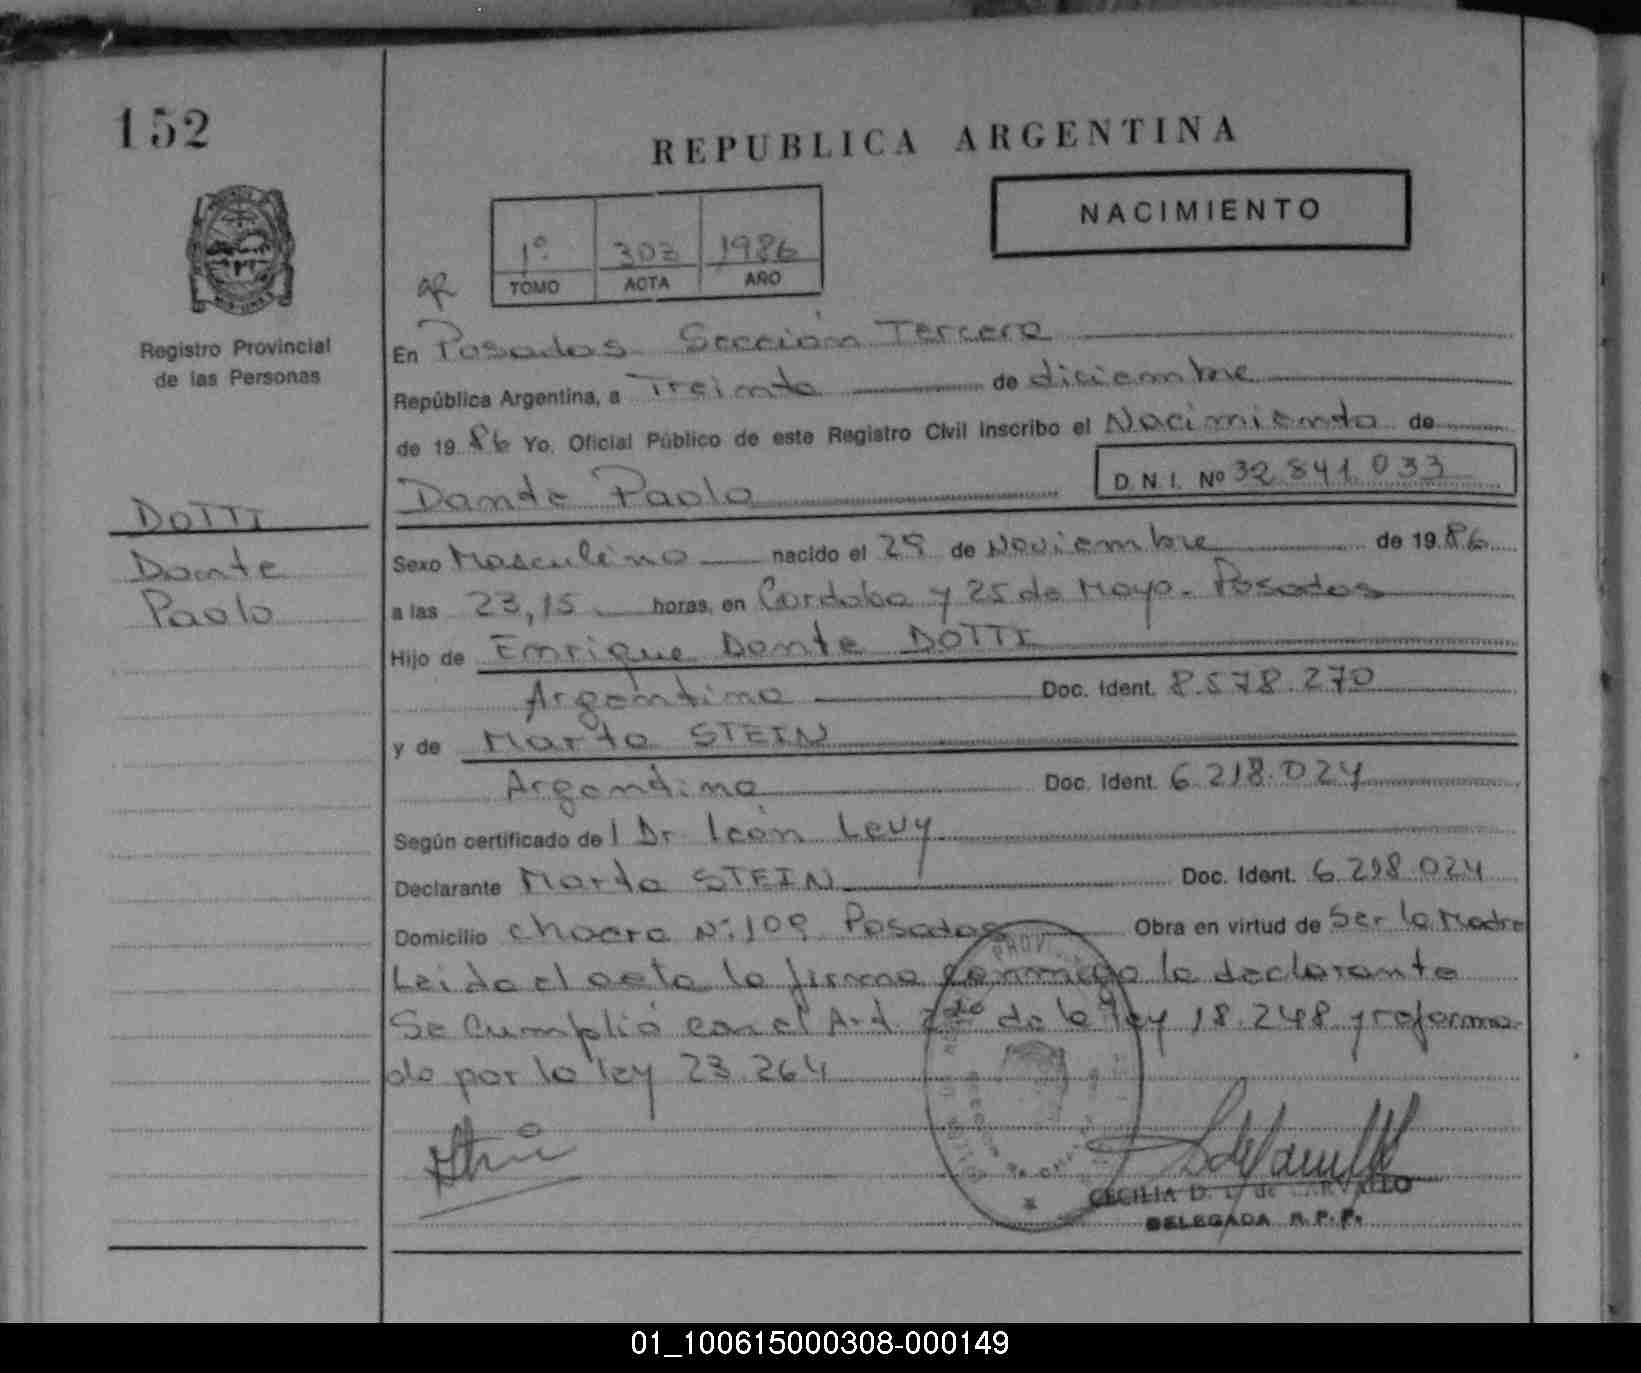 152
REPUBLICA ARGENTINA
NACIMIENTO
1º 303 1986
TOMO ACTA AÑO
Registro Provincial
de las Personas
En Posadas Sección Tercera
República Argentina, a Treinta de diciembre
de 19 86 Yo, Oficial Público de este Registro Civil inscribo el Nacimiento de
Dante Paolo D.N.I. Nº 32.841.033
DOTTI
Dante
Paolo
Sexo Masculino nacido el 29 de Noviembre de 19 86
a las 23,15 horas, en Cordoba y 25 de Mayo. Posadas
Hijo de Enrique Dante DOTTI
Argentino Doc. Ident. 8.578.270
y de Marta STEIN
Argentina Doc. Ident. 6.218.024
Según certificado del Dr León Levy
Declarante Marta STEIN Doc. Ident. 6.298.024
Domicilio chacra Nº 109 Posadas Obra en virtud de Ser la Madre
Leida el acta la firma conmigo la declarante
Se Cumplió con el Art 2do de la ley 18.248 y reforma
da por la ley 23.264
CECILIA D. de
DELEGADA R.P.P.
01_100615000308-000149